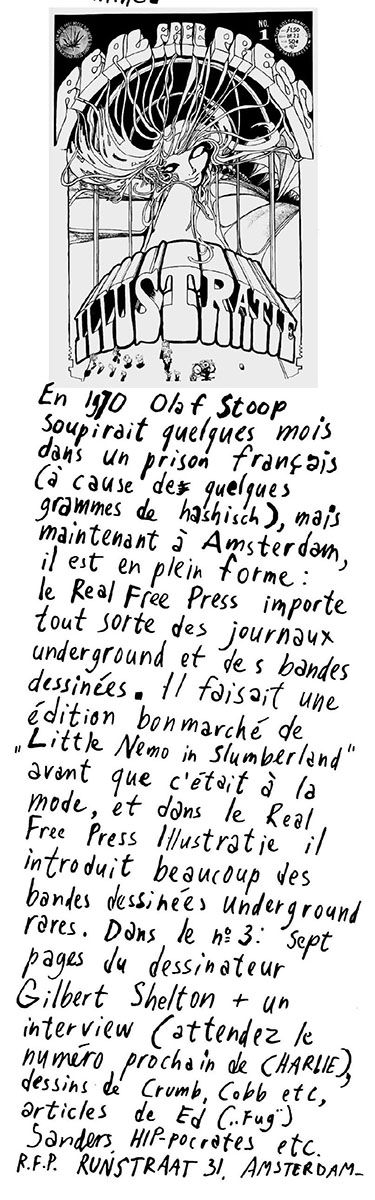 REAL FREE PRESS
NO.
1
ILLUSTRATIE
En 1970 Olaf Stoop
soupirait quelques mois
dans un prison français
(à cause des quelques
grammes de hashisch), mais
maintenant à Amsterdam,
il est en plein forme:
le Real Free Press importe
tout sorte des journaux
underground et des bandes
dessinées. Il faisait une
édition bonmarché de
„Little Nemo in Slumberland"
avant que c'était à la
mode, et dans le Real
Free Press Illustratie il
introduit beaucoup des
bandes dessinées underground
rares. Dans le nº 3: Sept
pages du dessinateur
Gilbert Shelton + un
interview (attendez le
numéro prochain de CHARLIE),
dessins de Crumb, Cobb etc,
articles de Ed („Fug")
Sanders, HIP-pocrates etc.
R.F.P. RUNSTRAAT 31, AMSTERDAM-